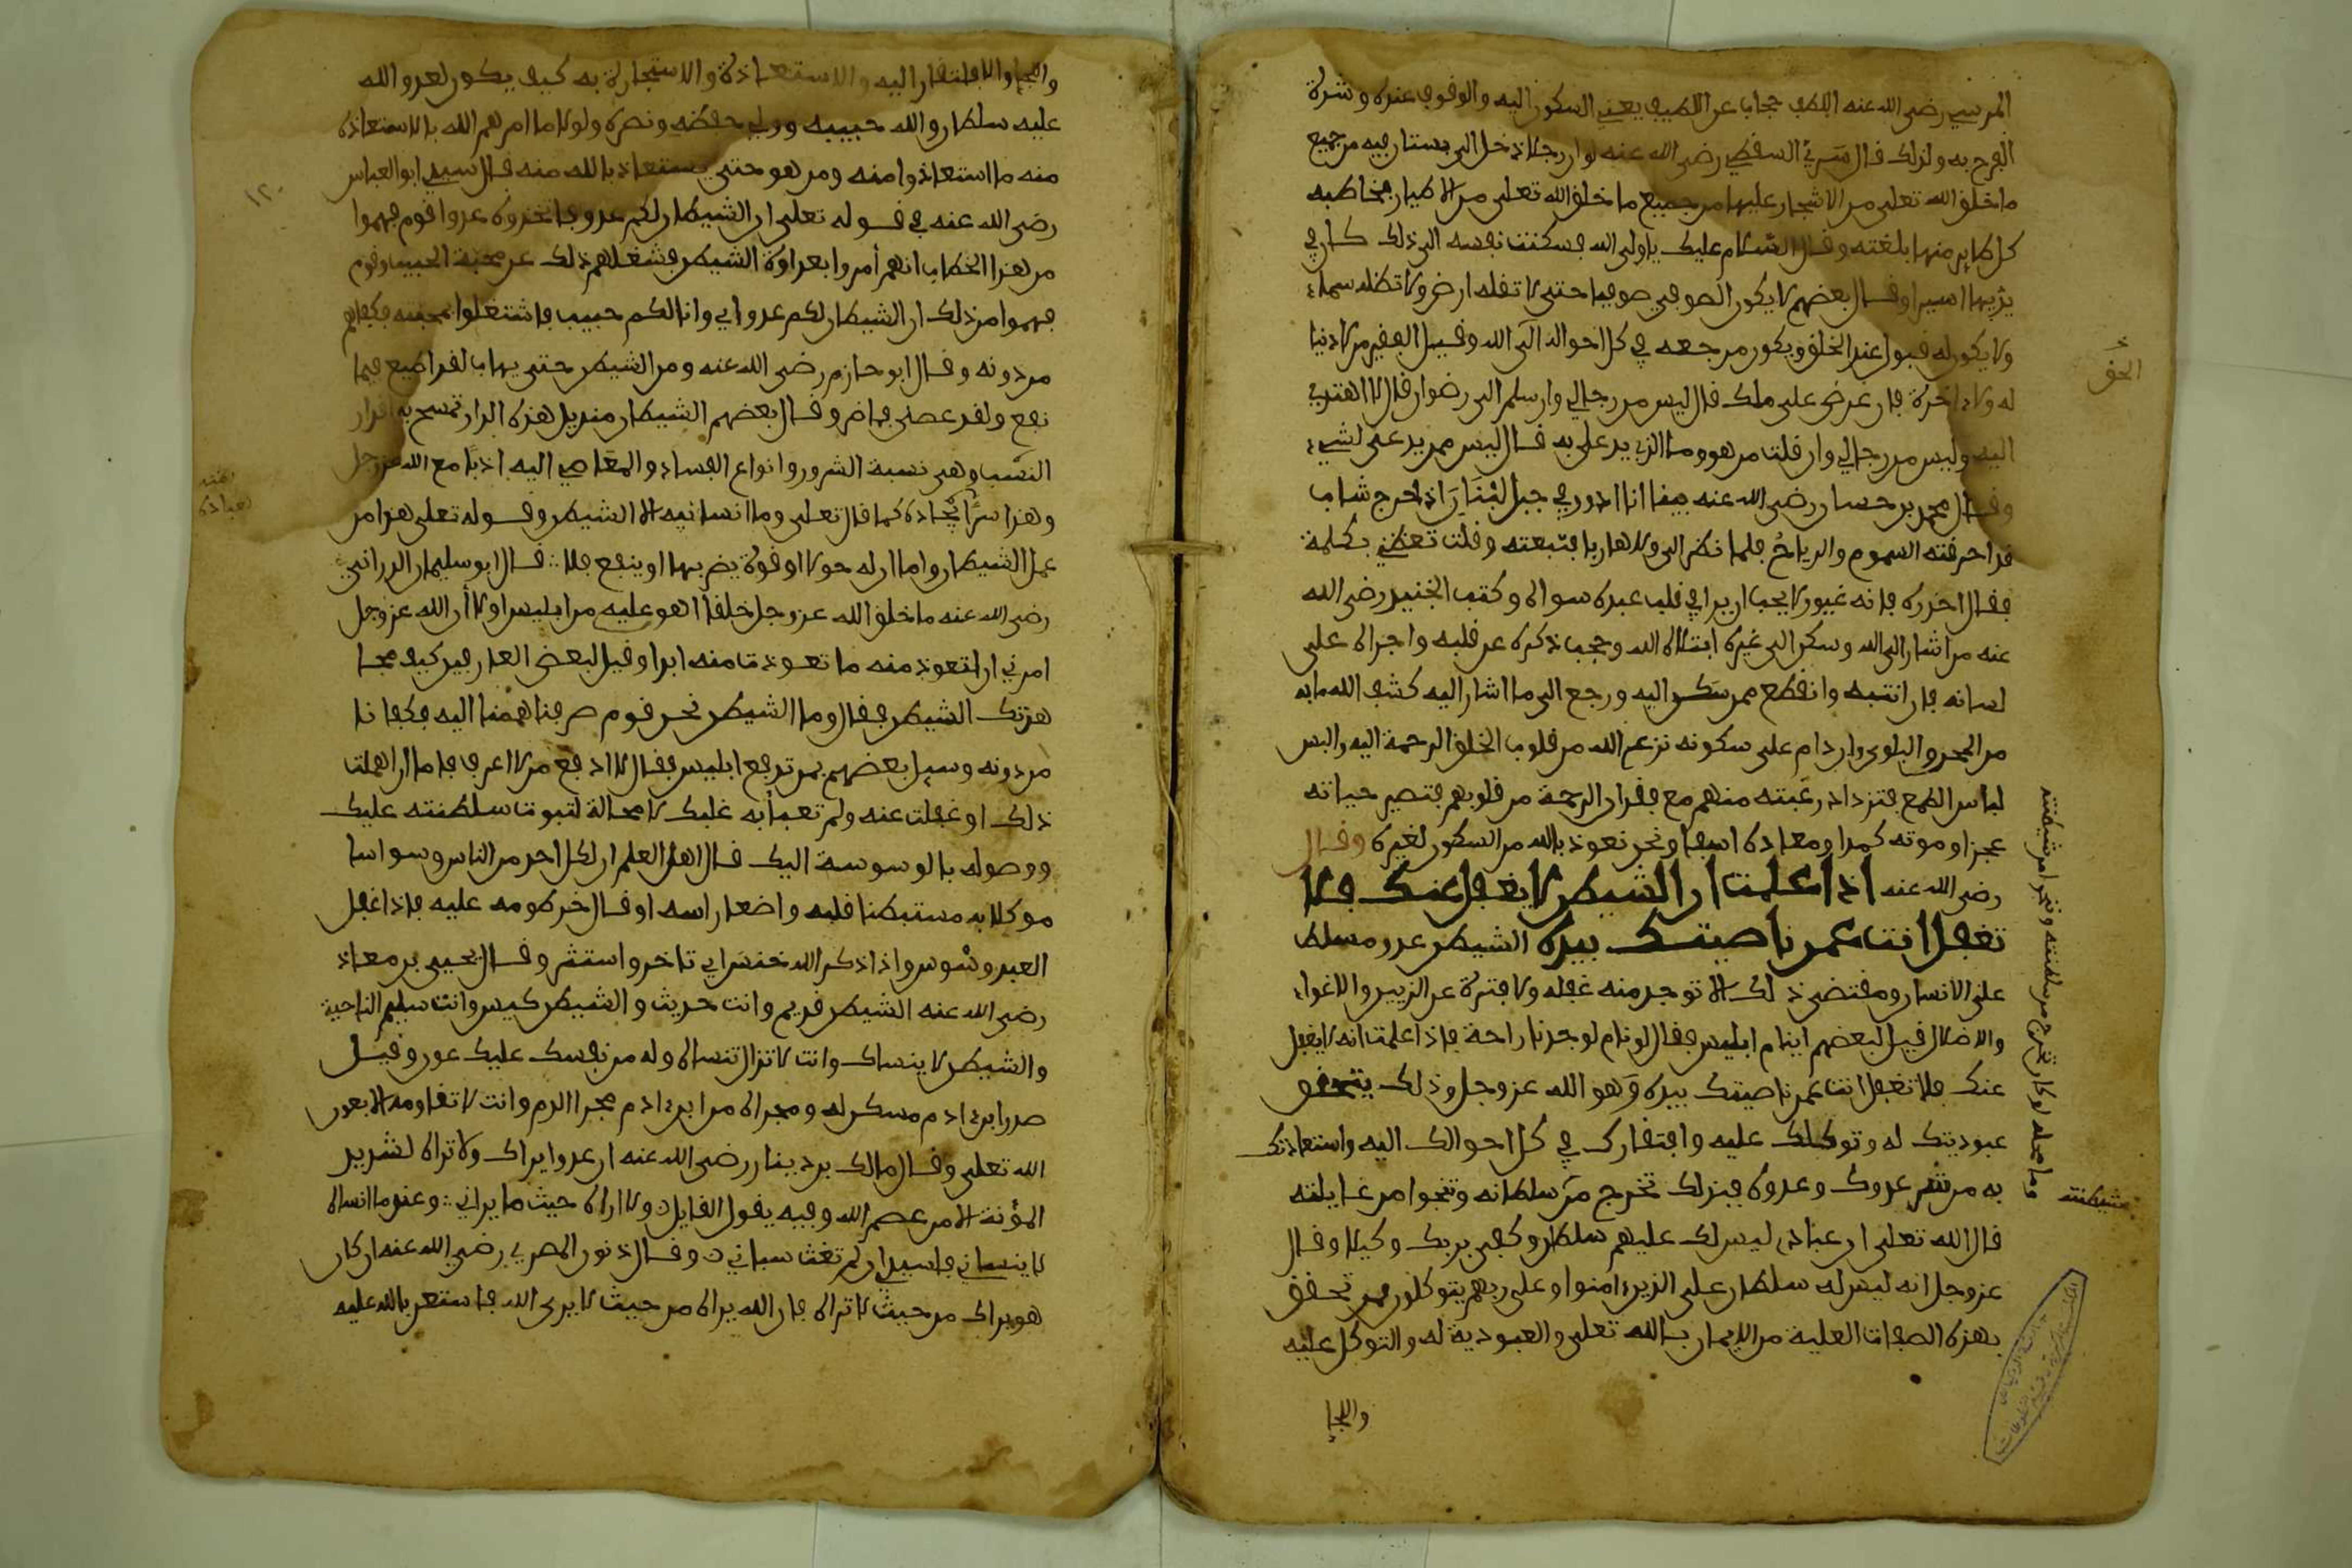 المرسي رضي الله عنه اللطف حجاب عن اللطيف يعني السكون اليه والوقوف عنده وشدة
الفرح به ولذلك قال سري السقطي رضي الله عنه لو ان رجلا دخل الى بستان فيه من جميع
ما خلق الله تعلى من الاشجار عليها من جميع ما خلق الله تعلى من الاطيار فخاطبه
كل طاير منها بلغته وقال السلام عليك يا ولي الله فسكنت نفسه الى ذلك كان في
يديها اسيرا وقال بعضهم لا يكون الصوفي صوفيا حتى لا تقله ارض ولا تظله سماء
ولا يكون له قبول عند الخلق ويكون مرجعه في كل احواله الى الله وقيل الفقير من لا دنيا
له ولا اخرة فان عرض على ملك قال ليس من رجالي وان سلم الى رضوان قال لا اهتدي
اليه وليس من رجالي وان قلت من هو وما الذي يدعى به قال ليس ممن يدعى لشيء
وقال محمد بن حسان رضي الله عنه بينا انا ادور في جبل لبنان اذ خرج شاب
قد احرقته السموم والرياح فلما نظر الي ولى هاربا فتبعته وقلت تعظني بكلمة
فقال احذره فانه غيور لا يحب ان يرى في قلب عبده سواه وكتب الجنيد رضي الله
عنه من اشار الى الله وسكن الى غيره ابتلاه الله وحجب ذكره عن قلبه واجراه على
لسانه فان انتبه وانقطع ممن سكن اليه ورجع الى ما اشار اليه كشف الله ما به
من المحن والبلوى وان دام على سكونه نزع الله من قلوب الخلق الرحمة اليه والبس
لباس الطمع فتزداد رغبته منهم مع فقدان الرحمة من قلوبهم فتصير حياته
عجزا وموته كمدا ومعاده اسفا ونحن نعوذ بالله من السكون لغيره وقال
رضي الله عنه اذا علمت ان الشيطن لا يغفل عنك فلا
تغفل انت عمن ناصيتك بيده الشيطن عدو مسلط
على الانسان ومقتضى ذلك الا توجد منه غفلة ولا فترة عن التزيين والاغواء
والاضلال قيل لبعضهم اينام ابليس فقال لو نام لوجدنا راحة فاذا علمت انه لا يغفل
عنك فلا تغفل انت عمن ناصيتك بيده وهو الله عز وجل وذلك بتحقق
عبوديتك له وتوكلك عليه وافتقارك في كل احوالك اليه واستعاذتك
به من شر عدوك وعدوه فبذلك تخرج من سلطانه وتنجوا من غايلته
قال الله تعلى ان عبادي ليس لك عليهم سلطان وكفى بربك وكيلا وقال
عز وجل انه ليس له سلطان على الذين امنوا وعلى ربهم يتوكلون فمن تحقق
بهذه الصفات العلية من الايمان بالله تعلى والعبودية له والتوكل عليه
واللجإ
الحق
واللجإ والافتقار اليه والاستعاذة والاستجارة به كيف يكون لعدو الله
عليه سلطان والله حبيبه وولي حفظه ونصره ولولا ما امرهم الله بالاستعاذة
منه ما استعاذوا منه ومن هو حتى يستعاذ بالله منه قال سيدي ابو العباس
رضي الله عنه في قوله تعلى ان الشيطان لكم عدو فاتخذوه عدوا قوم فهموا
من هذا الخطاب انهم أمروا بعداوة الشيطن فشغلهم ذلك عن محبة الحبيب وقوم
فهموا من ذلك ان الشيطان لكم عدو اي وانا لكم حبيب فاشتغلوا بمحبته فكفاهم
من دونه وقال ابو حازم رضي الله عنه ومن الشيطن حتى يهاب لقد اطيع فما
نفع ولقد عصي فما ضر وقال بعضهم الشيطان منديل هذه الدار تمسح به اقذار
النسب وهي نسبة الشرور وانواع الفساد والمعاصي اليه ادبا مع الله عز وجل
وهذا سر ايجاده كما قال تعلى وما انسانيه الا الشيطن وقوله تعلى هذا من
عمل الشيطان واما ان له حولا او قوة يضر بها او ينفع فلا قال ابو سليمان الدراني
رضي الله عنه ما خلق الله عز وجل خلقا اهو عليه من ابليس ولولا أن الله عز وجل
امرني ان اتعوذ منه ما تعوذت منه ابدا وقيل لبعض العارفين كيف مجا
هدتك الشيطن فقال وما الشيطن نحن قوم صرفنا هممنا اليه فكفانا
من دونه وسيل بعضهم بم تدفع ابليس فقال لا ادفع من لا اعرف فاما ان اهملت
ذلك او غفلت عنه ولم تعبأ به غلبك لا محالة لثبوت سلطنته عليك
ووصوله بالوسوسة اليك قال اهل العلم ان لكل احد من الناس وسواسا
موكلا به مستبطنا قلبه واضعا راسه او قال خرطومه عليه فاذا غفل
العبد وسوس واذا ذكر الله خنس اي تاخر واستتر وقال يحيى بن معاذ
رضي الله عنه الشيطن قديم وانت حديث والشيطن كيس وانت سليم الناحية
والشيطن لا ينساك وانت لا تزال تنساه وله من نفسك عليك عون وقيل
صدر ابن ادم مسكن له ومجراه من ابن ادم مجرا الدم وانت لا تقاومه الا بعون
الله تعلى وقال مالك بن دينار رضي الله عنه ان عدوا يراك ولا تراه لشديد
المؤنة الا من عصم الله وفيه يقول القايل ولا اراه حيث ما يراني وعندما انساه
لا ينساني فاسيدي ان لم تغث سباني وقال ذنون المصري رضي الله عنه ان كان
هو يراك من حيث لا تراه فان الله يراه من حيث لا يرى الله فاستعن بالله عليه
١٢٠